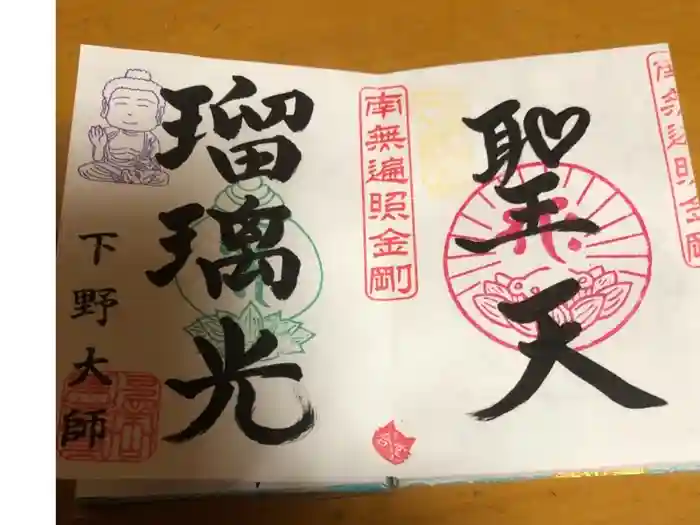 南無遍照金剛
聖天
南無遍照金剛
瑠璃光
下野大師